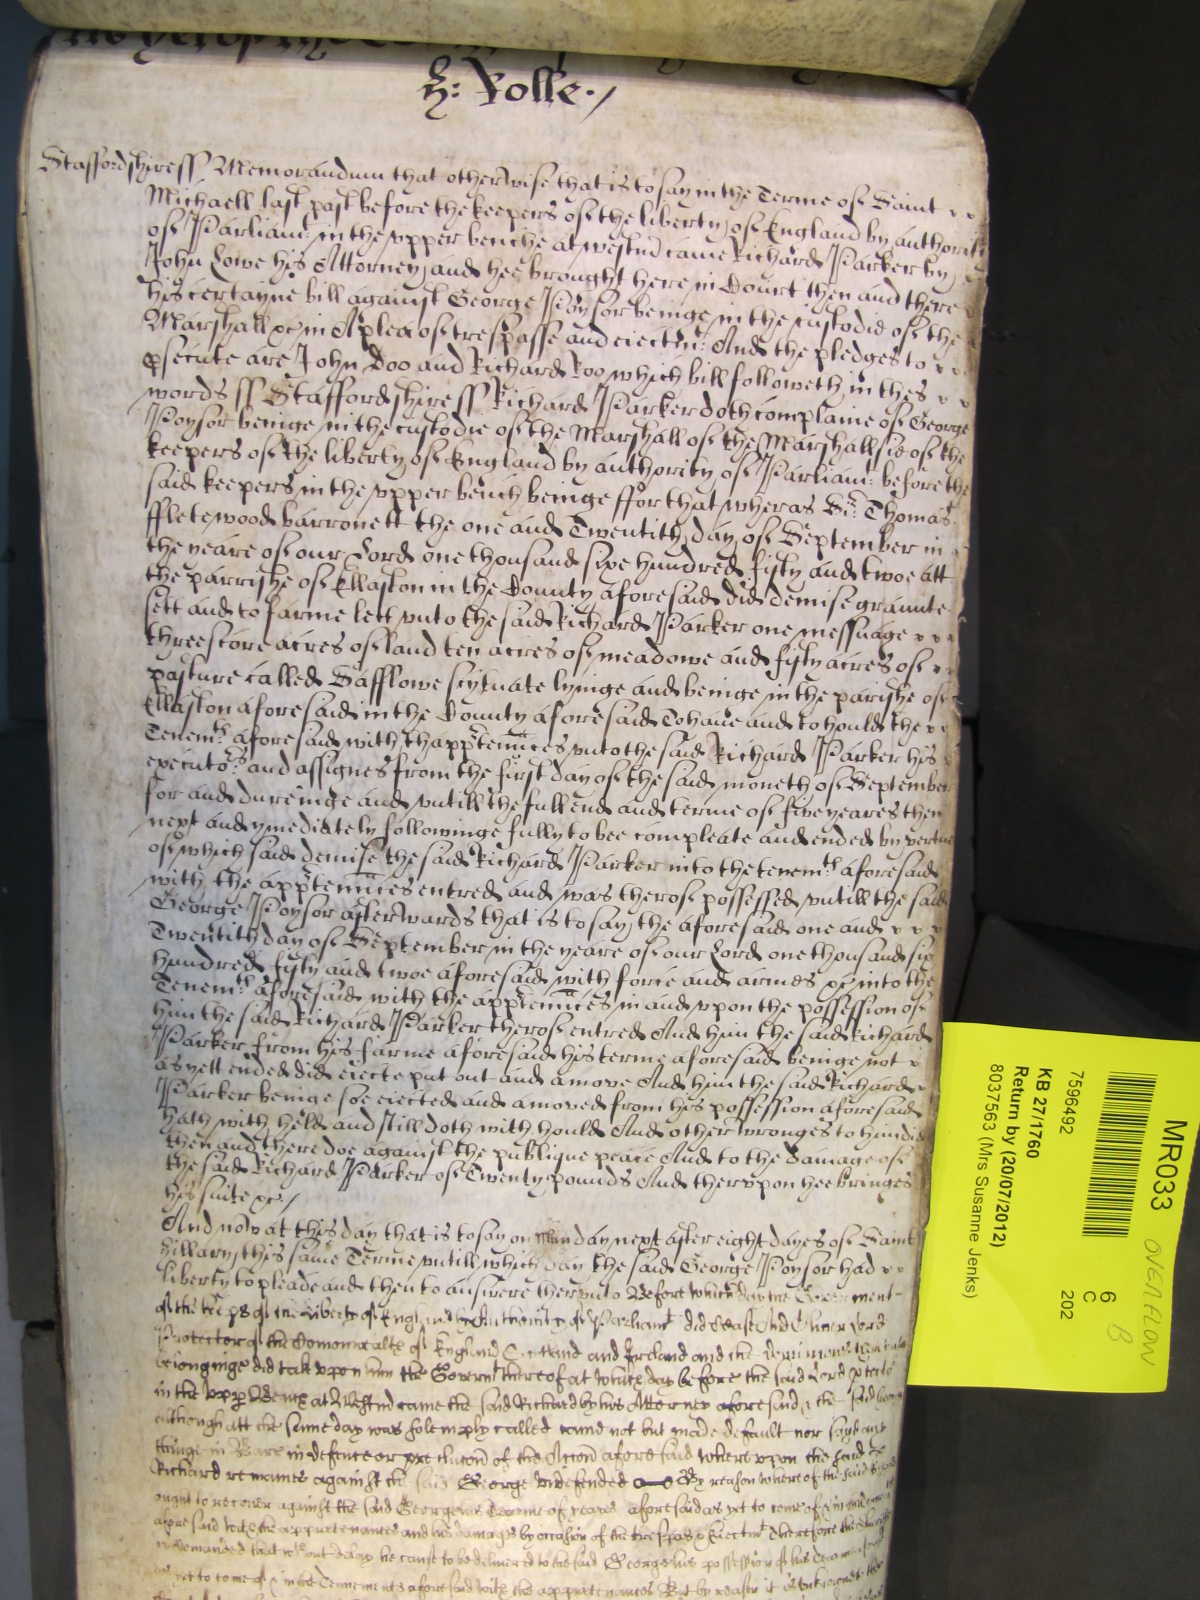 h: Rolle
Staffordshire ss Memorandum that otherwise that is to say in the Terme of Saint
Michaell last past before the keepers of the liberty of England by authority
of Parliamt: in the vpper benche at westmr came Richard Parker by
John Lowe his Attorney and hee brought here in Court then and there
his certayne bill against George Poysor beinge in the custodie of the
Marshall &c in A plea of trespasse and eiectmt: And the pledges to
psecute are John Doo and Richard Roo which bill followeth in thes
words ss Staffordshire ss Richard Parker doth complaine of George
Poysor beinge in the custodie of the Marshall of the Marshallsie of the
keepers of the liberty of England by authority of Parliamt: before the
said keepers in the vpper bench beinge ffor that wheras Sr: Thomas
ffletewood barronett the one and Twentith day of September in
the yeare of our Lord one thousand sixe hundred fifty and twoe att
the parrishe of Ellaston in the County aforesaid did demise graunte
sett and to farme lett vnto the said Richard Parker one messuage
threescore acres of land ten acres of meadowe and fifty acres of
pasture called Cafflowe scytuate lyinge and beinge in the parishe of
Ellaston aforesaid in the County aforesaid To haue and to hould the
Tenemts aforesaid with thapptennces vnto the said Richard Parker his
executors: and assignes from the first day of the said moneth of September
for and dureinge and vntill the full end and terme of five yeares then
next and ymediately followinge fully to bee compleate and ended by vertue
of which said demise the said Richard Parker into the tenemts aforesaid
with the apptennces entred and was therof possessed vntill the said
George Poysor afterwards that is to say the aforesaid one and
Twentith day of September in the yeare of our Lord one thousand six
hundred fifty and twoe aforesaid with force and armes &c into the
Tenemts aforesaid with the apptennces in and vpon the possession of
him the said Richard Parker therof entred And him the said Richard
Parker from his farme aforesaid his terme aforesaid beinge not
as yett ended did eiecte put out and amove And him the said Richard
Parker beinge soe eiected and amoved from his possession aforesaid
hath with held and still doth with hould And other wronges to him did
then and there doe against the publique peace And to the damage of
the said Richard Parker of Twenty pounds And thervpon hee bringes
his suite &c
And now at this day that is to say on Munday next after eight dayes of Saint
hillary this same Terme vntill which day the said George Poysor had
liberty to pleade and then to answere thervnto Before which day the Government
of the keeps of the Liberty of England by Authority of Parliamt did Cease And Oliver Lord
Protector of the Comonwealth of England Scotland and Ireland and the dominions
belonginge did take vpon him the Governmt thereof at which day before the said Lord ptector
in the vpp Bench at Westmr came the said Richard by his Attorney aforesaid & the said George
although att the same day was solemply called came not but made default nor sayd any
thinge in Barr in defence or preclucon of the Accon aforesaid wherevpon the said
Richard remaines against the said George vndefended By reason whereof the said Richard
ought to recover against the said George his Terme of yeares aforesaid as yet to come of & in
aforesaid with the appurtenances and his damages by occasion of the trespas & Eiectmt Therefore the
is demanded that without delay he cause to be delivered to the said George his possession of his Terme
yet to come of & in the Tenements aforesaid with the appurtenances But by reason it is vnknowne to the
MR033
OVERFLOW
B
6
C
202
7596492
KB 27/1760
Return by (20/07/2012)
8037563 (Mrs Susanne Jenks)